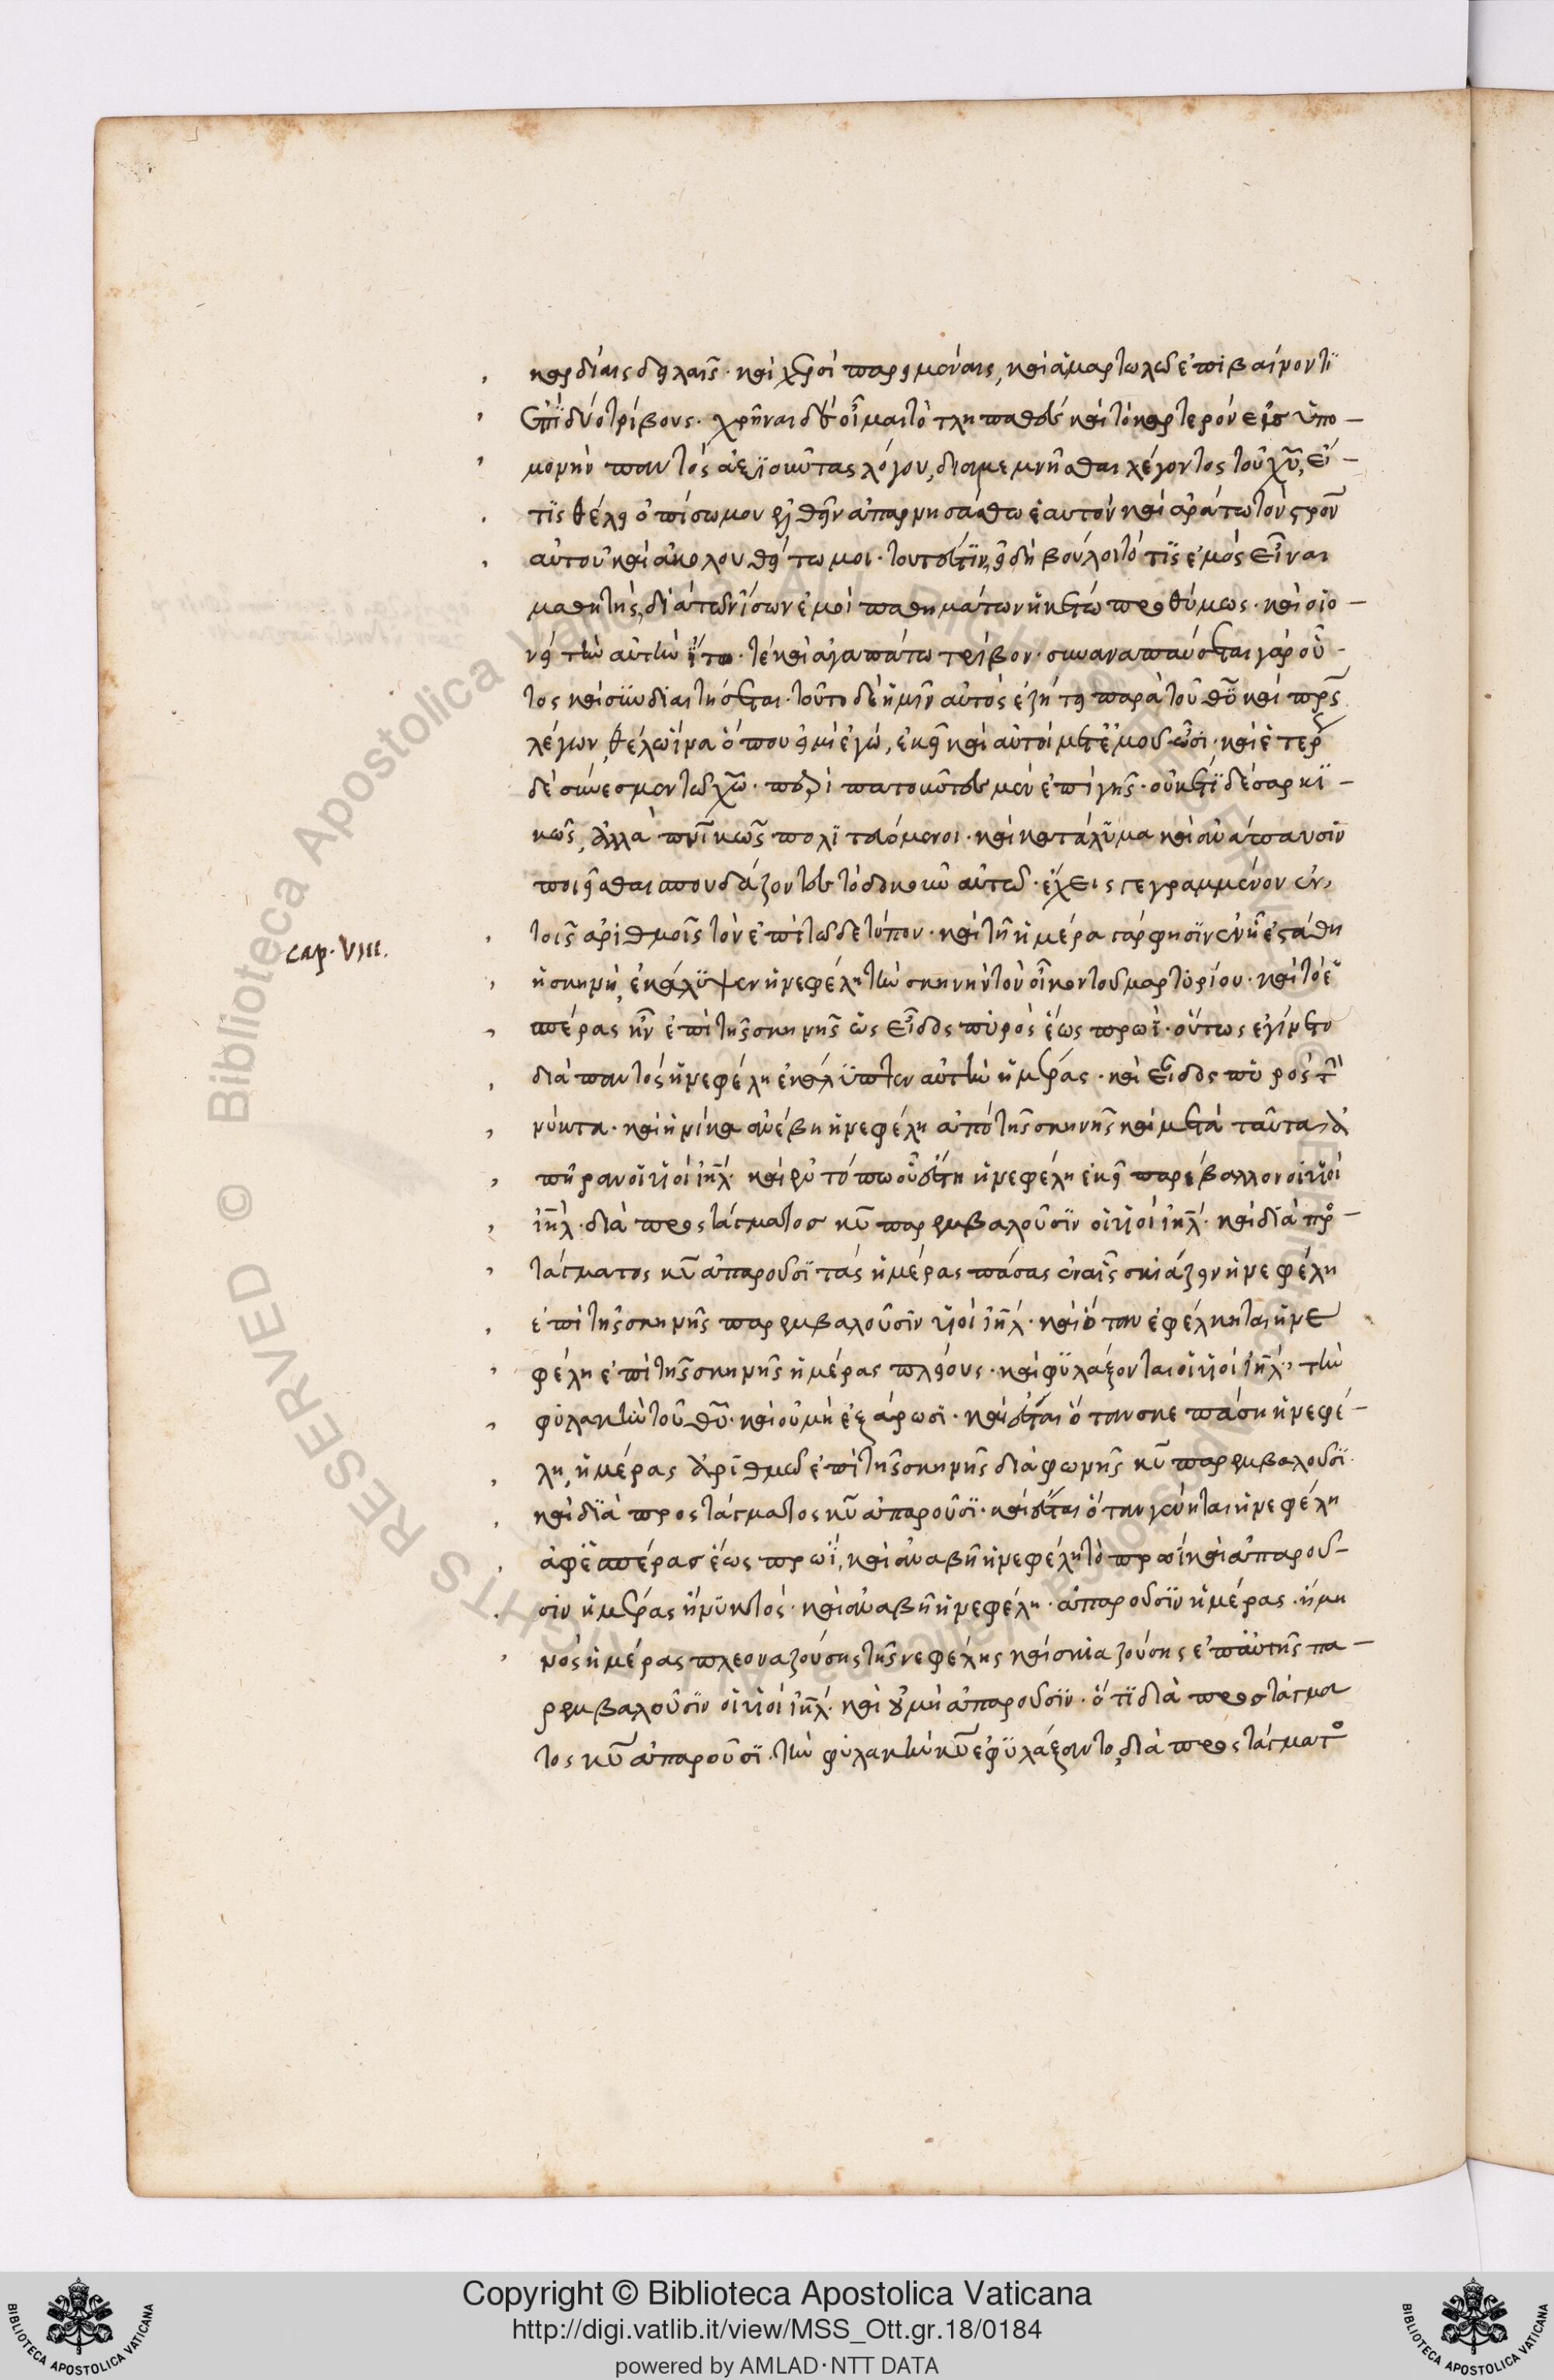 καρδίαις δειλαῖς· καὶ χερσὶ παρειμέναις, καὶ ἁμαρτωλῶ ἐπιβαίνοντι
ἐπὶ δύο τρίβους. χρῆναι δὲ οἶμαι τὸ τληπαθὲς καὶ τὸ καρτερὸν εἰς ὑπο-
μονὴν παντὸς ἀξιοῦντας λόγου, διαμεμνῆσθαι λέγοντος τοῦ χῦ, εἴ-
τις θέλει ὀπίσω μου ἐλθεῖν ἀπαρνησάσθω ἑαυτὸν καὶ ἀράτω τὸν στρὸν
αὐτοῦ καὶ ἀκολουθείτω μοι· τουτέστιν, εἰ δὴ βούλοιτό τις ἐμὸς εἶναι
μαθητὴς, διὰ τῶν ἴσων ἐμοὶ παθημάτων ἡκέτω προθύμως· καὶ οἱο-
νεὶ τὴν αὐτὴν ἴτω τε καὶ ἀγαπάτω τρίβον· συναναπαύσεται γὰρ οὗ-
τος καὶ συνδιαιτήσεται· τοῦτο δὲ ἡμῖν αὐτὸς ἐζήτει παρὰ τοῦ θῦ καὶ πρς
λέγων, θέλω ἵνα ὅπου εἰμὶ ἐγώ, ἐκεῖ καὶ αὐτοὶ μετ' ἐμοῦ ὦσι· καὶ ἑτέρως
δὲ σύνεσμεν τῶ χῶ· πεζοὶ πατοῦντες μὲν ἐπὶ γῆς· οὐκέτι δὲ σαρκι-
κῶς, ἀλλὰ πνικῶς πολιτευόμενοι· καὶ κατάλυμα καὶ ἀνάπαυσιν
ποιεῖσθαι σπουδάζοντες τὸ δοκοῦν αὐτῶ· ἔχεις γεγραμμένον ἐν
τοῖς ἀριθμοῖς τὸν ἐπὶ τῶδε τύπον· καὶ τῆ ἡμέρα γάρ φησιν ἐν ἧ ἐστάθη
cap. VIII.
ἡ σκηνὴ, ἐκάλυψεν ἡ νεφέλη τὴν σκηνὴν τὸν οἶκον τοῦ μαρτυρίου· καὶ τὸ ἑ
σπέρας ἦν ἐπὶ τῆς σκηνῆς ὡς εἶδος πυρὸς ἕως πρωΐ· οὕτως ἐγίνετο
διὰ παντὸς ἡ νεφέλη ἐκάλυπτεν αὐτὴν ἡμέρας· καὶ εἶδος πυρὸς τὴν
νύκτα· καὶ ἡνίκα ἀνέβη ἡ νεφέλη ἀπὸ τῆς σκηνῆς καὶ μετὰ ταῦτα ἀ
πῆραν οἱ υἱοὶ ιηλ· καὶ ἐν τόπω οὗ ἔστη ἡ νεφέλη ἐκεῖ παρέβαλλον οἱ υἱοὶ
ιηλ· διὰ προστάγματος κῦ παρεμβαλοῦσιν οἱ υἱοὶ ιηλ· καὶ διὰ προ-
τάγματος κῦ ἀπαροῦσι τὰς ἡμέρας πάσας ἐν αἷς σκιάζει ἡ νεφέλη
ἐπὶ τῆς σκηνῆς παρεμβαλοῦσιν υἱοὶ ιηλ· καὶ ὅταν ἐφέλκηται ἡ νε
φέλη ἐπὶ τῆς σκηνῆς ἡμέρας πλείους· καὶ φυλάξονται οἱ υἱοὶ ιηλ· τὴν
φυλακὴν τοῦ θῦ· καὶ οὐ μὴ ἐξάρωσι· καὶ ἔσται ὅταν σκεπάση ἡ νεφέ-
λη, ἡμέρας ἀριθμῶ ἐπὶ τῆς σκηνῆς διὰ φωνῆς κῦ παρεμβαλοῦσι
καὶ διὰ προστάγματος κῦ ἀπαροῦσι· καὶ ἔσται ὅταν γένηται ἡ νεφέλη
ἀφ' ἑσπέρας ἕως πρωΐ, καὶ ἀναβῆ ἡ νεφέλη τὸ πρωΐ καὶ ἀπαροῦ-
σιν ἡμέρας ἢ νυκτὸς· καὶ ἀναβῆ ἡ νεφέλη· ἀπαροῦσιν ἡμέρας· ἢ μη
νὸς ἡμέρας πλεοναζούσης τῆς νεφέλης καὶ σκιαζούσης ἐπ' αὐτῆς πα-
ρεμβαλοῦσιν οἱ υἱοὶ ιηλ· καὶ οὐ μὴ ἀπαροῦσιν· ὅτι διὰ προστάγμα
τος κῦ ἀπαροῦσι· τὴν φυλακὴν κῦ ἐφυλάξαντο, διὰ προστάγματος
Copyright © Biblioteca Apostolica Vaticana
http://digi.vatlib.it/view/MSS_Ott.gr.18/0184
powered by AMLAD·NTT DATA